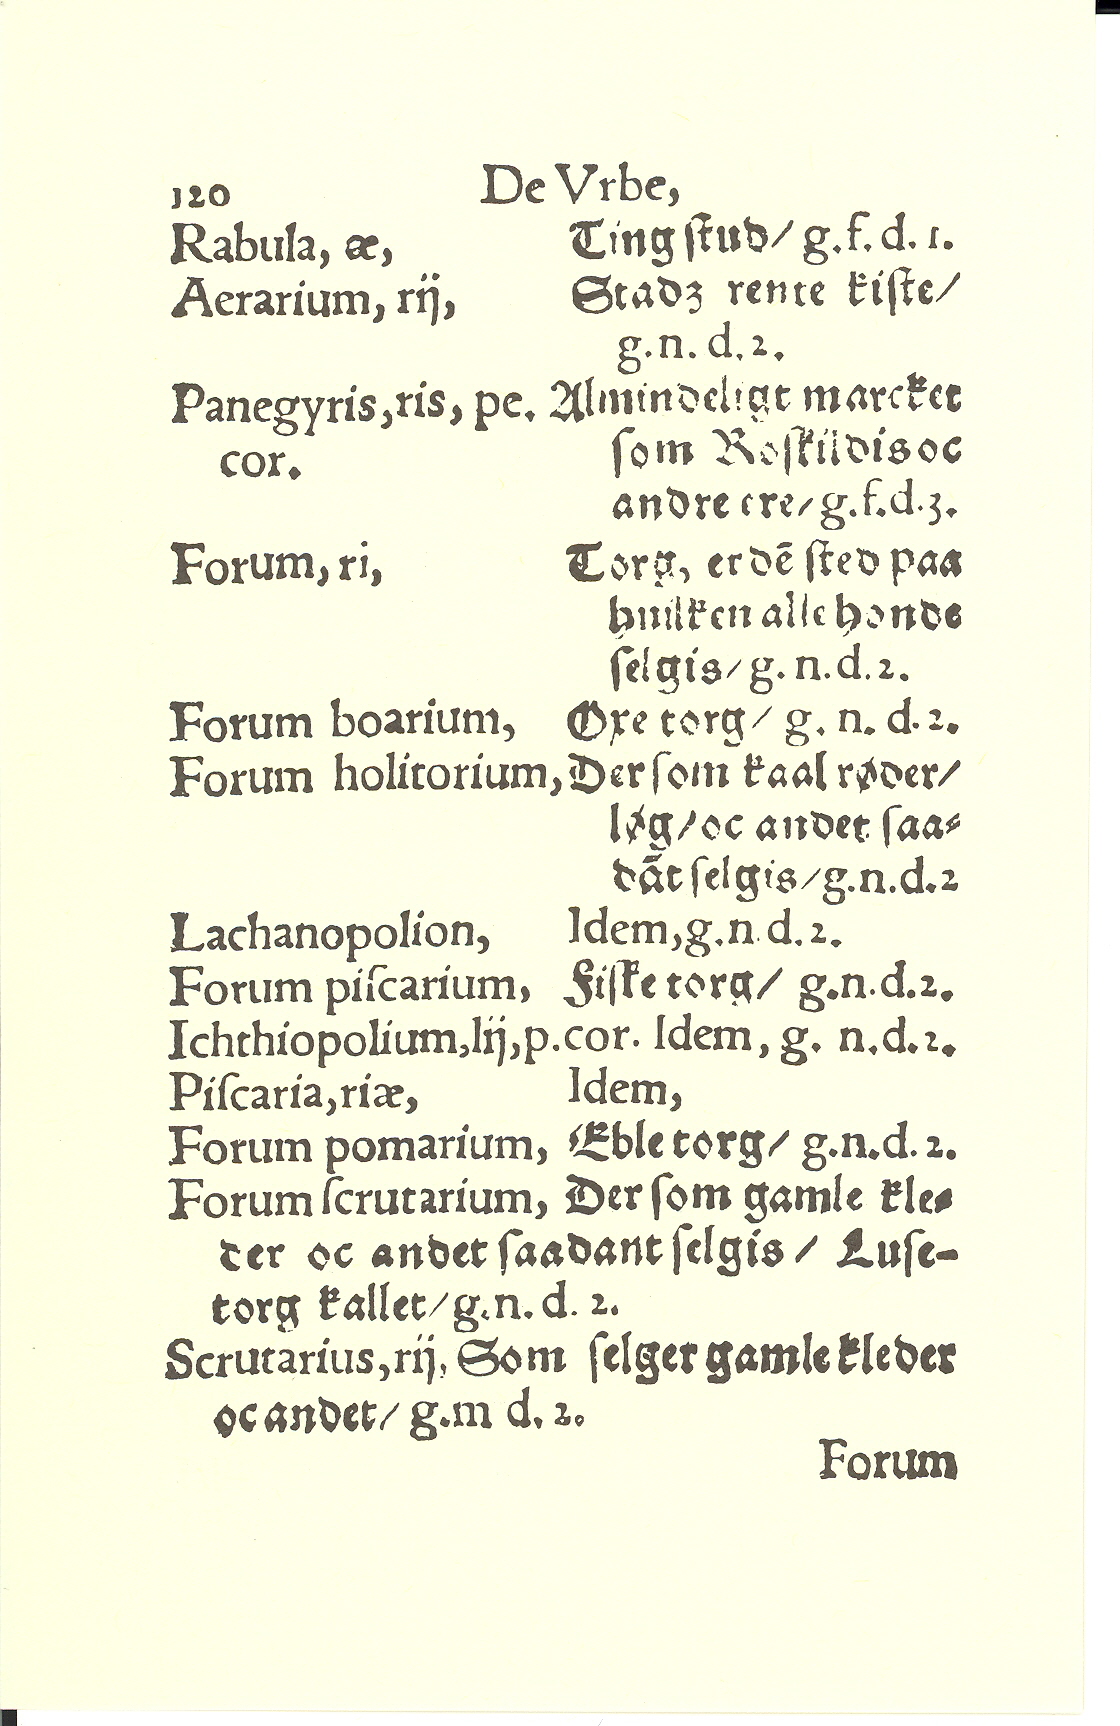 120 De Vrbe,
Rabula, æ, Ting ſtud/ g.f.d.1.
Aerarium, rij, Stadz rente kiſte/
g.n.d.2.
Panegyris,ris, pe. Almindeligt marcket
cor. ſom Roſkildis oc
andre ere/ g.f.d.3.
Forum, ri, Torg, er dē ſted paa
huilken alle honde
ſelgis/ g.n.d.2.
Forum boarium, Oxe torg/ g.n.d.2.
Forum holitorium, Der ſom kaal røder/
løg/ oc andet ſaa⸗
dāt ſelgis/ g.n.d.2
Lachanopolion, Idem,g.n.d.2.
Forum piſcarium, Fiſke torg/ g.n.d.2.
Ichthiopolium,lij,p.cor. Idem, g.n.d.2.
Piſcaria,riæ, Idem,
Forum pomarium, Eble torg/ g.n.d.2.
Forum ſcrutarium, Der ſom gamle kle⸗
der oc andet ſaadant ſelgis/ Luſe-
torg kallet/ g.n.d.2.
Scrutarius,rij, Som ſelger gamle kleder
oc andet/ g.m d.2.
Forum